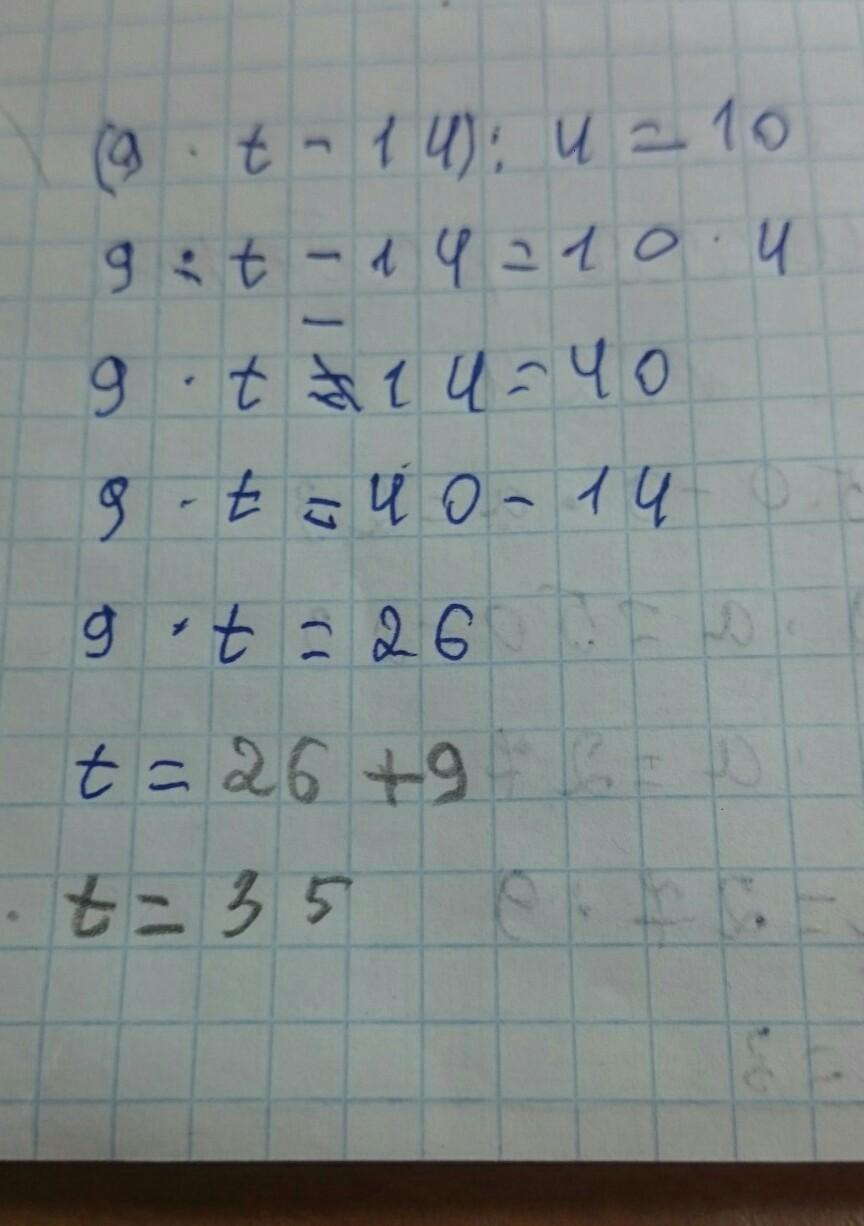 (9 · t - 14) : 4 = 10
9 · t - 14 = 10 · 4
9 · t - 14 = 40
9 · t = 40 - 14
9 · t = 26
t = 26 + 9
t = 35